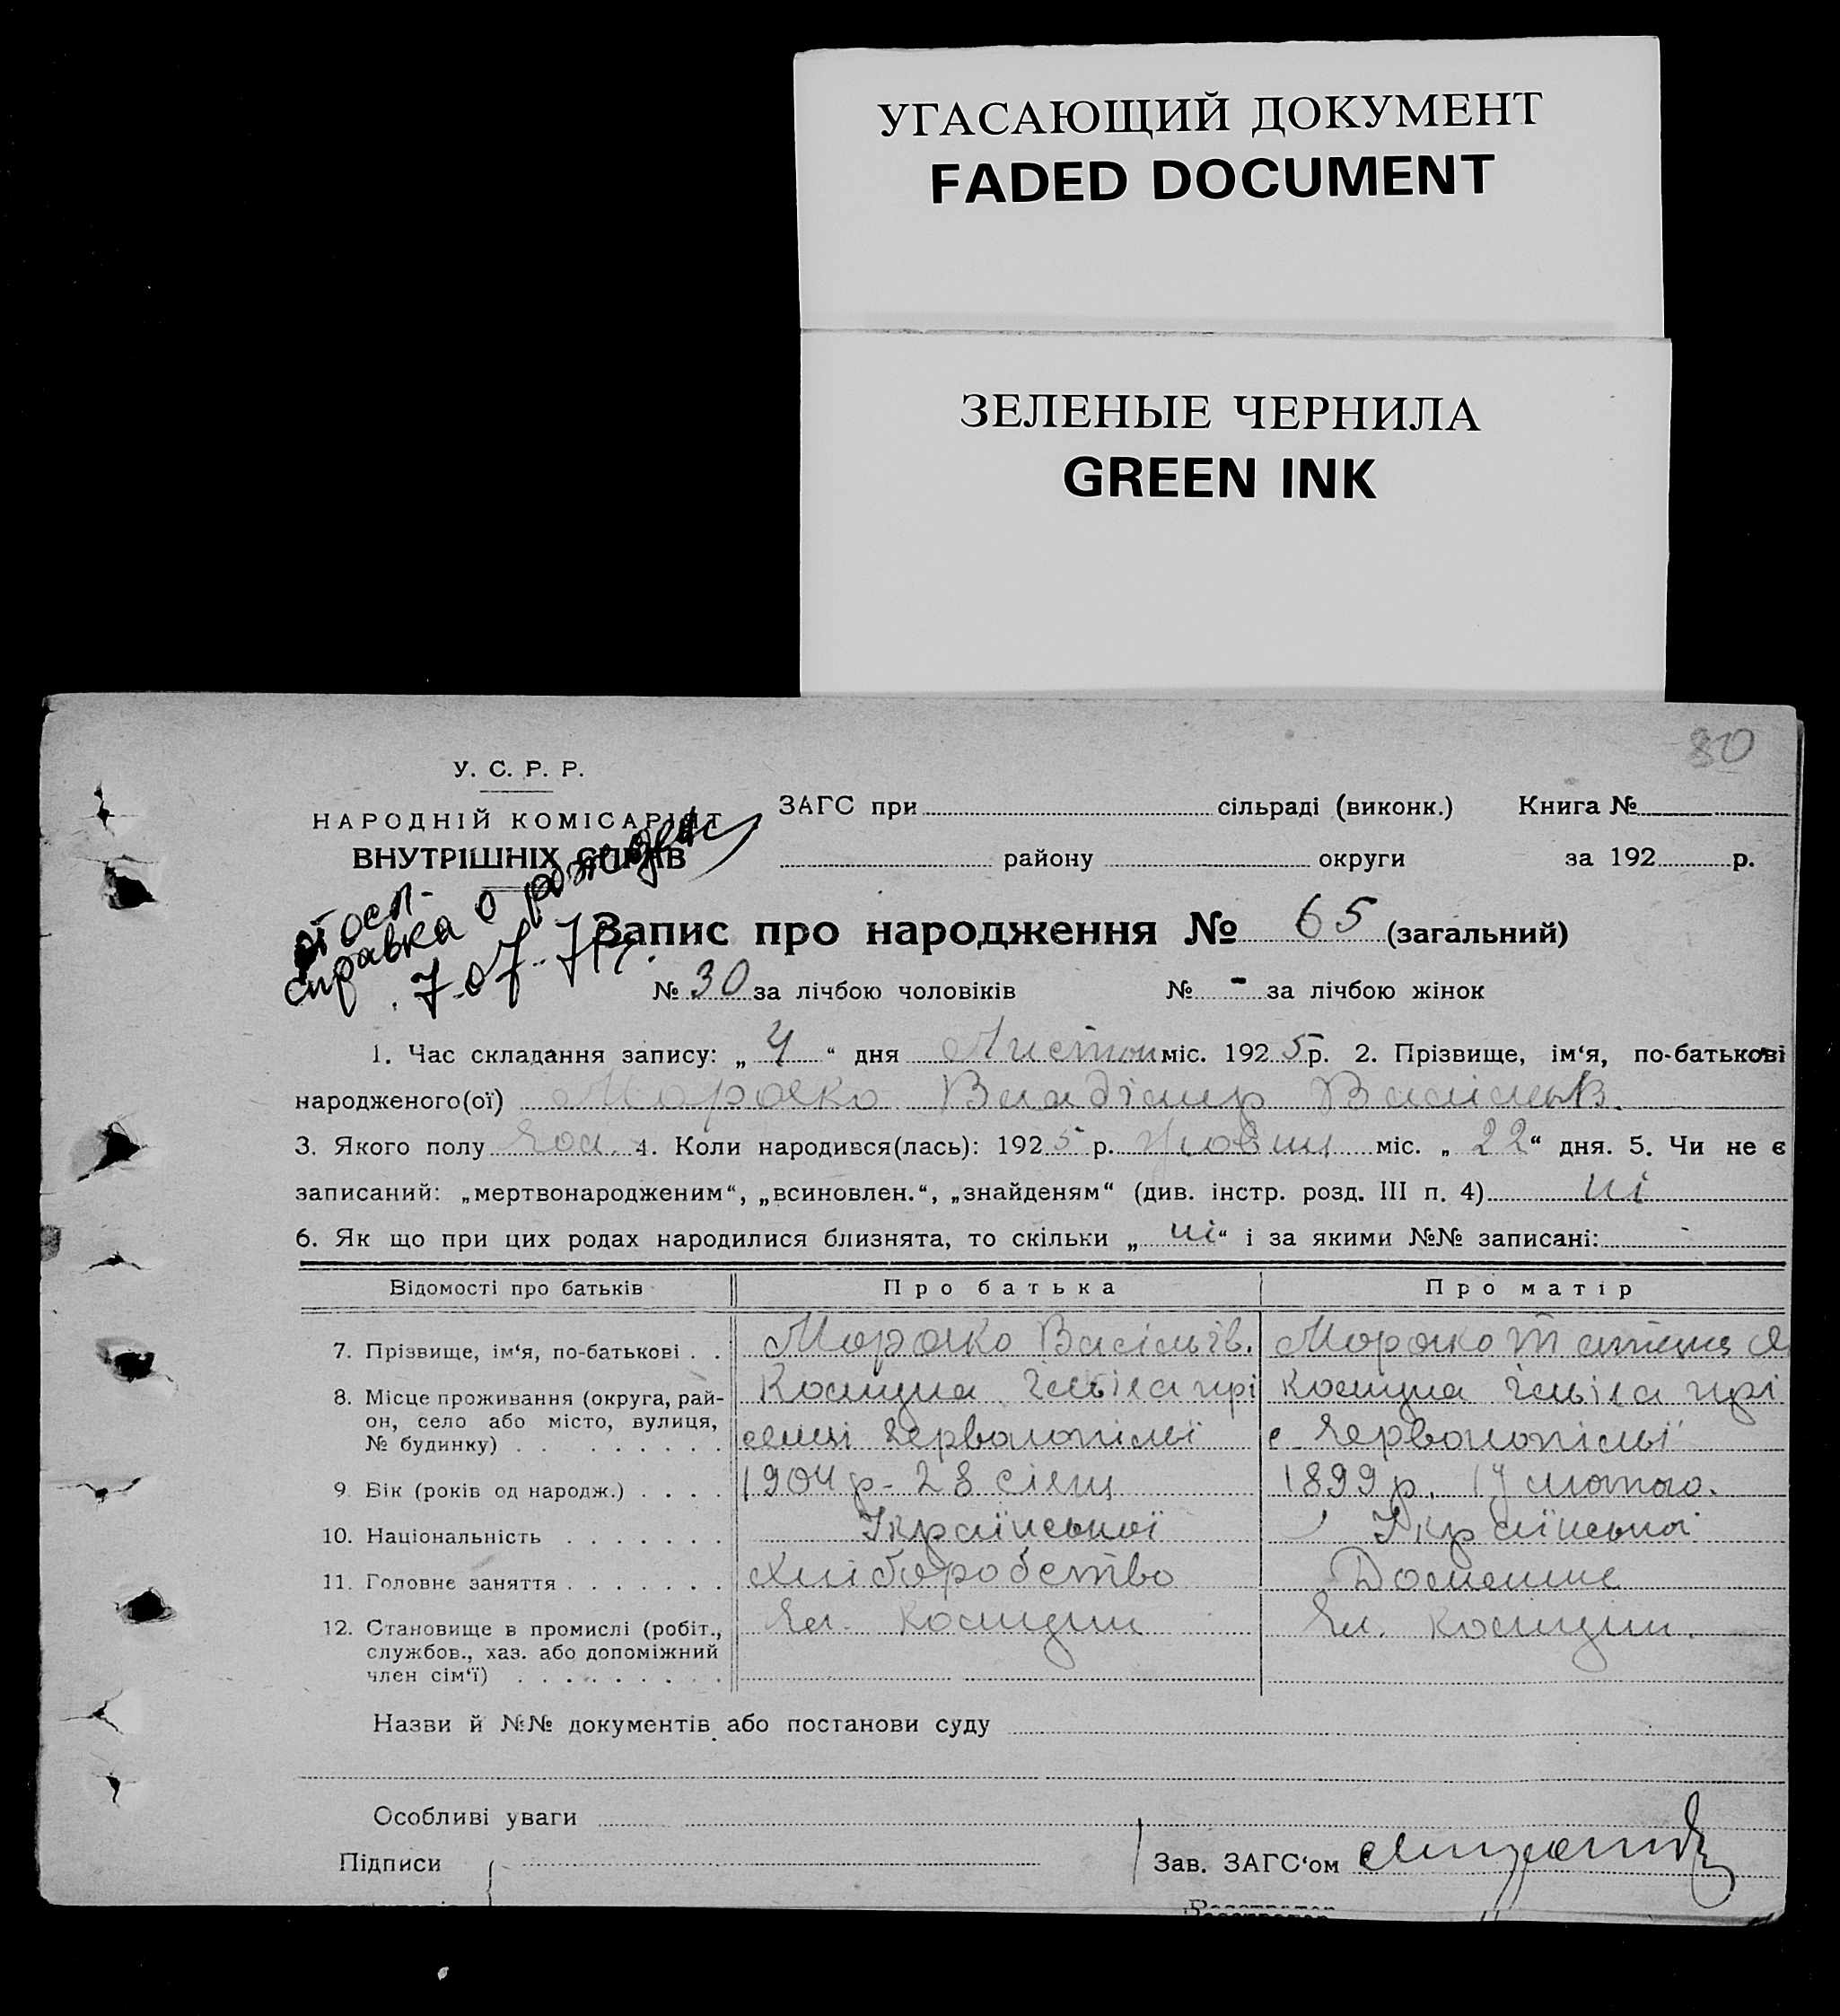 УГАСАЮЩИЙ ДОКУМЕНТ
FADED DOCUMENT
ЗЕЛЕНЫЕ ЧЕРНИЛА
GREEN INK
80
У. С. Р. Р.
НАРОДНІЙ КОМІСАРІЯТ
ВНУТРІШНІХ СПРАВ
ЗАГС при сільраді (виконк.) Книга №
району округи за 192 р.
справка о рожден
Запис про народження № 65 (загальний)
№ 30 за лічбою чоловіків № - за лічбою жінок
1. Час складання запису: „ 4 “ дня Листоп міс. 192 5 р. 2. Прізвище, ім‘я, по-батькові
народженого(ої) Владімир Васільїв.
3. Якого полу Чол. 4. Коли народився(лась): 192 5 р. Жовтц міс. „ 22 “ дня. 5. Чи не є
записаний: „мертвонародженим“, „всиновлен.“, „знайденям“ (див. інстр. розд. III п. 4) ні
6. Як що при цих родах народилися близнята, то скільки „ ні “ і за якими №№ записані: -
Відомості про батьків Про батька Про матір
7. Прізвище, ім‘я, по-батькові . . Васільїв.
8. Місце проживання (округа, рай-
он, село або місто, вулиця,
№ будинку) . . . . . . . . .
Комуна прі
селі Червонопіллі
Комуна прі
с Червонопіллі
9. Вік (років од народж.) . . . . 1904 р - 28 січц 1899 р. 17 лютого.
10. Національність . . . . . . . Української Української
11. Головне заняття . . . . . . . Хліборобство Домашнє
12. Становище в промислі (робіт.,
службов., хаз. або допоміжний
член сім‘ї) . . . . . . . . .
Чл. комуни Чл. комуни.
Назви й №№ документів або постанови суду
Особливі уваги
Підписи Зав. ЗАГС‘ом
Реєстратор